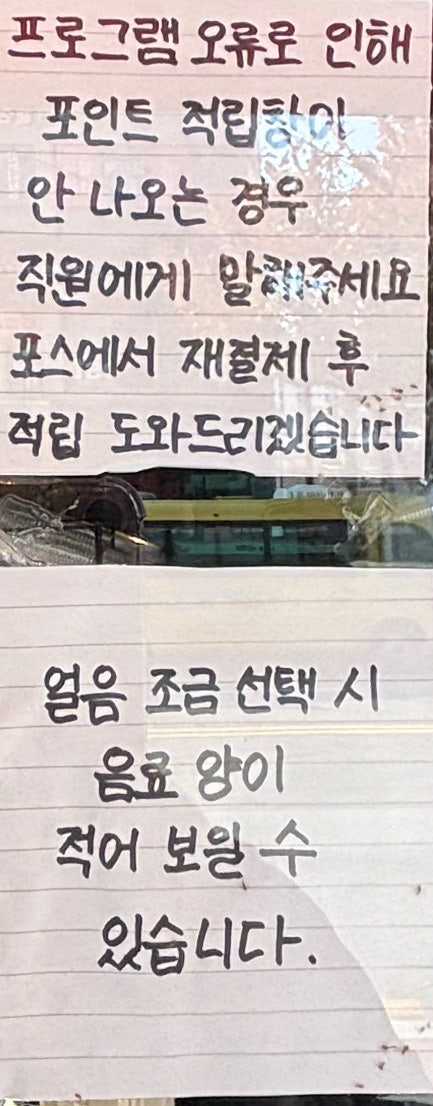 프로그램 오류로 인해
포인트 적립창이
안 나오는 경우
직원에게 말해주세요
포스에서 재결제 후
적립 도와드리겠습니다
얼음 조금 선택 시
음료 양이
적어 보일 수
있습니다.